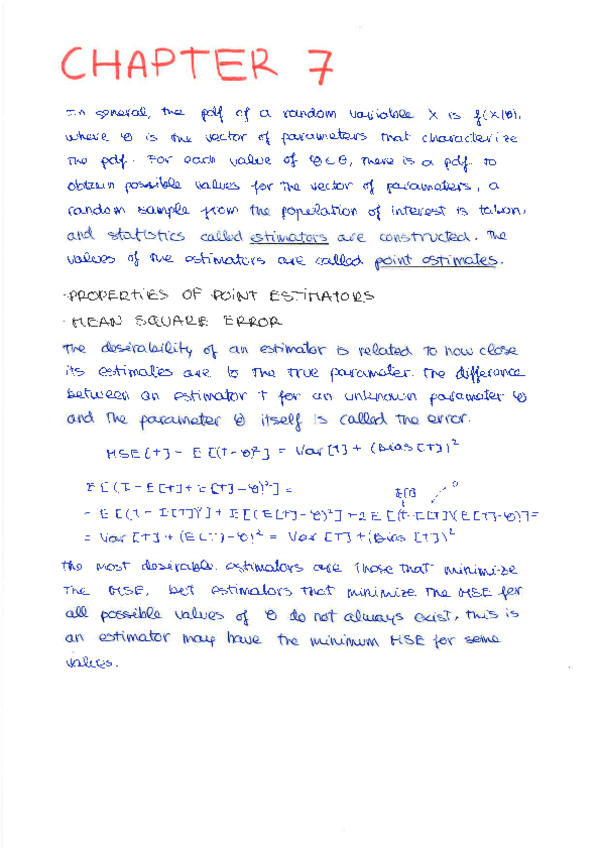 CHAPTER 7
In general, the pdf of a random variable X is f(x|θ),
where θ is the vector of parameters that characterize
the pdf. For each value of θ∈Θ, there is a pdf. to
obtain possible values for the vector of parameters, a
random sample from the population of interest is taken,
and statistics called estimators are constructed. The
values of the estimators are called point estimates.
·PROPERTIES OF POINT ESTIMATORS
·MEAN SQUARE ERROR
The desirability of an estimator is related to how close
its estimates are to the true parameter. The difference
between an estimator T for an unknown parameter θ
and the parameter θ itself is called the error.
MSE[T] = E[(T-θ)²] = Var[T] + (Bias[T])²
E[(T - E[T] + E[T] - θ)²] =
= E[(T - E[T])²] + E[(E[T] - θ)²] + 2E[(T - E[T])(E[T] - θ)] =
= Var[T] + (E[T] - θ)² = Var[T] + (Bias[T])²
The most desirable estimators are those that minimize
the MSE, but estimators that minimize the MSE for
all possible values of θ do not always exist, this is
an estimator may have the minimum MSE for some
values.